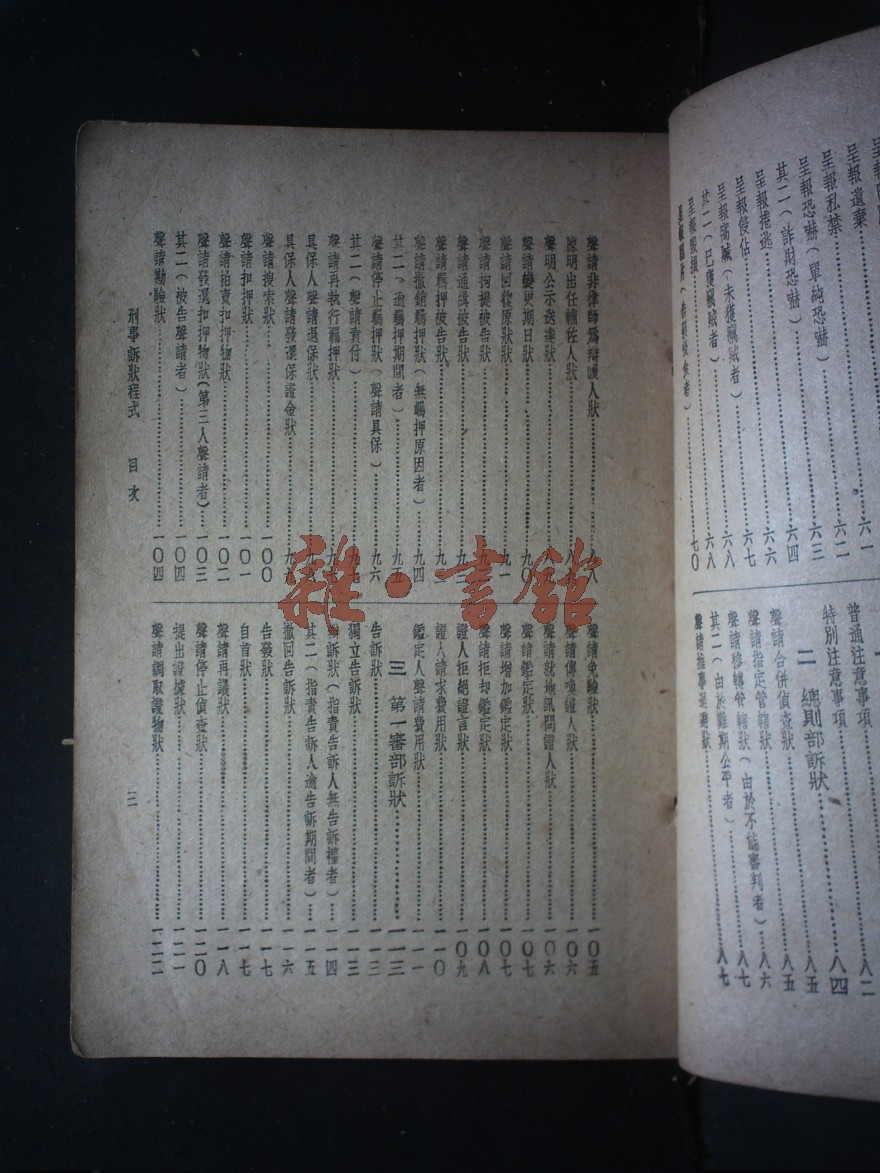 呈報遺棄…………六一
呈報私禁…………六二
呈報恐嚇(單純恐嚇)…………六三
其二(詐財恐嚇)…………六四
呈報捲逃…………六六
呈報侵佔…………六七
呈報竊賊(未獲竊賊者)…………六八
其二(已獲竊賊者)…………六八
呈報毀損…………七〇
普通注意事項…………八二
特別注意事項…………八四
二 總則部訴狀…………八五
聲請合併偵查狀…………八五
聲請指定管轄狀(由於不能審判者)…………八六
聲請移轉管轄狀…………八七
其二(由於難期公平者)…………八七
聲請非律師爲辯護人狀…………八八
陳明出任輔佐人狀…………八九
聲明公示送達狀
聲請變更期日狀…………九〇
聲請回復原狀狀…………九一
聲請拘提被告狀
聲請通緝被告狀…………九三
聲請羈押被告狀
聲請撤銷羈押狀(無羈押原因者)…………九四
其二(逾羈押期間者)…………九五
聲請停止羈押狀(聲請具保)…………九六
其二(聲請責付)…………九七
聲請再執行羈押狀
具保人聲請退保狀
具保人聲請發還保證金狀…………九九
聲請搜索狀…………一〇〇
聲請扣押狀…………一〇一
聲請拍賣扣押物狀…………一〇二
聲請發還扣押物狀(第三人聲請者)…………一〇三
其二(被告聲請者)…………一〇四
聲請勘驗狀…………一〇四
聲請免驗狀…………一〇五
聲請傳喚證人狀…………一〇六
聲請就地訊問證人狀…………一〇六
聲請鑑定狀…………一〇七
聲請增加鑑定狀…………一〇七
聲請拒却鑑定狀…………一〇八
證人拒絕證言狀…………一〇九
證人請求費用狀…………一一〇
鑑定人聲請費用狀…………一一一
三 第一審部訴狀…………一一三
告訴狀…………一一三
獨立告訴狀…………一一三
辯訴狀(指責告訴人無告訴權者)…………一一四
其二(指責告訴人逾告訴期間者)…………一一五
撤回告訴狀…………一一六
告發狀…………一一七
自首狀…………一一七
聲請再議狀…………一一八
聲請停止偵查狀…………一二〇
提出證據狀…………一二一
聲請調取證物狀…………一二二
刑事訴狀程式 目次
三
雜·書館